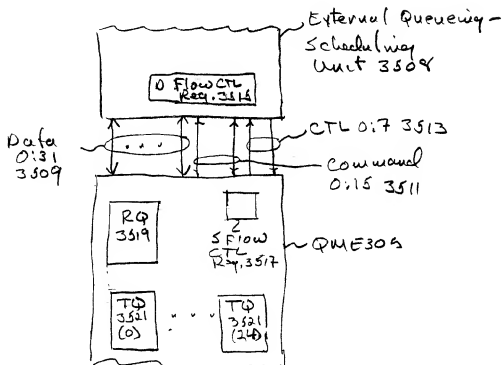 External Queueing-
Scheduling
Unit 3508
D FlowCTL
Reg. 3515
Data
0:31
3509
CTL 0:7 3513
Command
0:15 3511
RQ
3519
S Flow
CTL
Reg. 3517
QME305
TQ
3521
(0)
TQ
3521
(24)